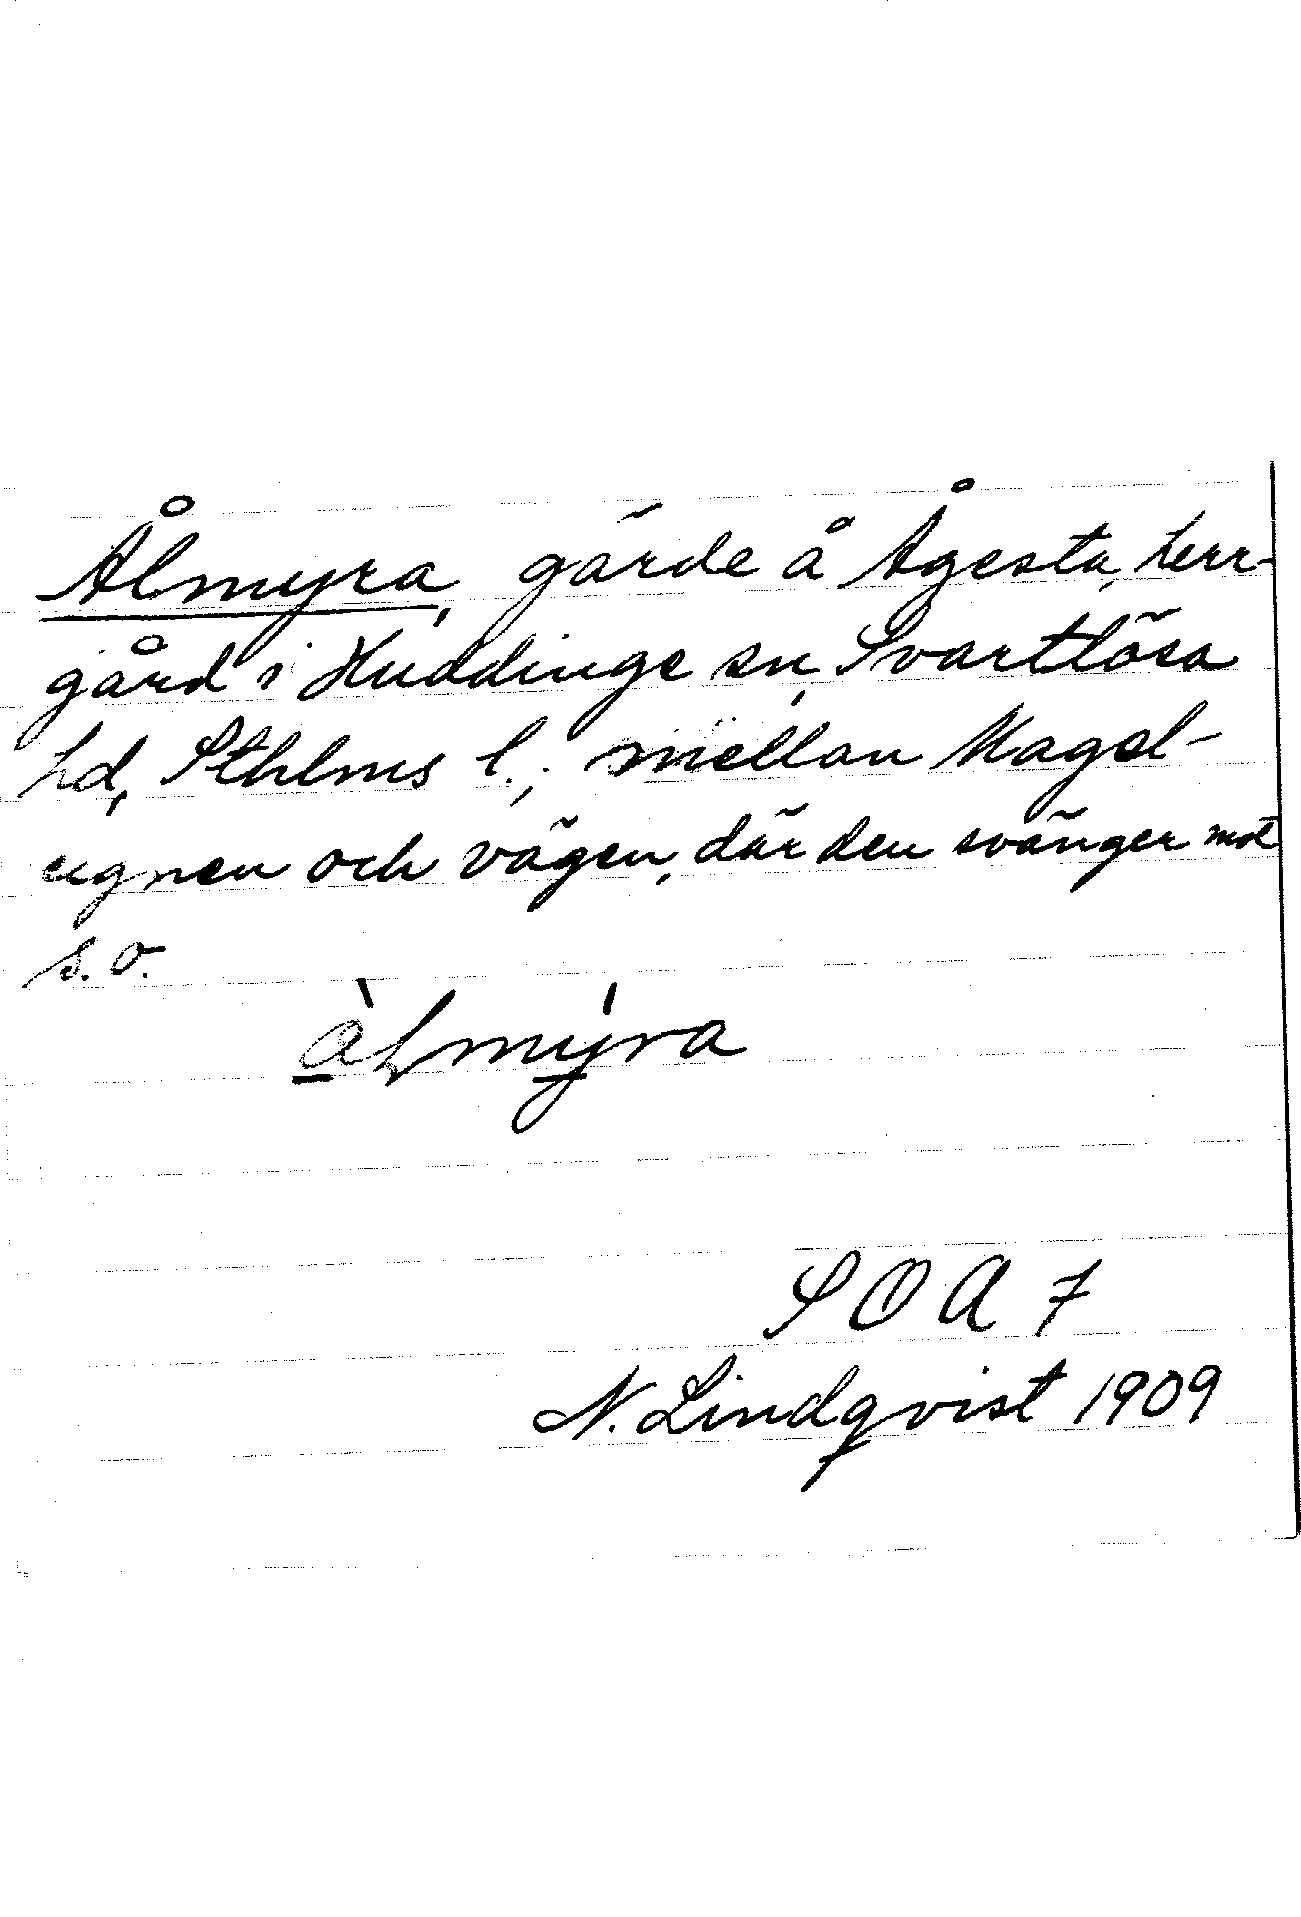 Ålmyra, gärde å Ågesta, herr-
gård i Huddinge sn, Svartlösa
hd, Sthlms l.; mellan Magel-
ugnen och vägen, där den svänger mot
s. o.
àlmýra
SOA 7
N. Lindqvist 1909